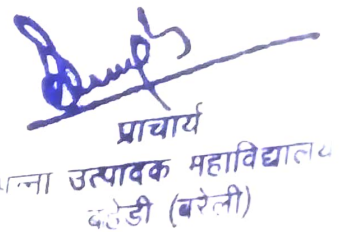 प्राचार्य
गन्ना उत्पादक महाविद्यालय
बहेडी (बरेली)